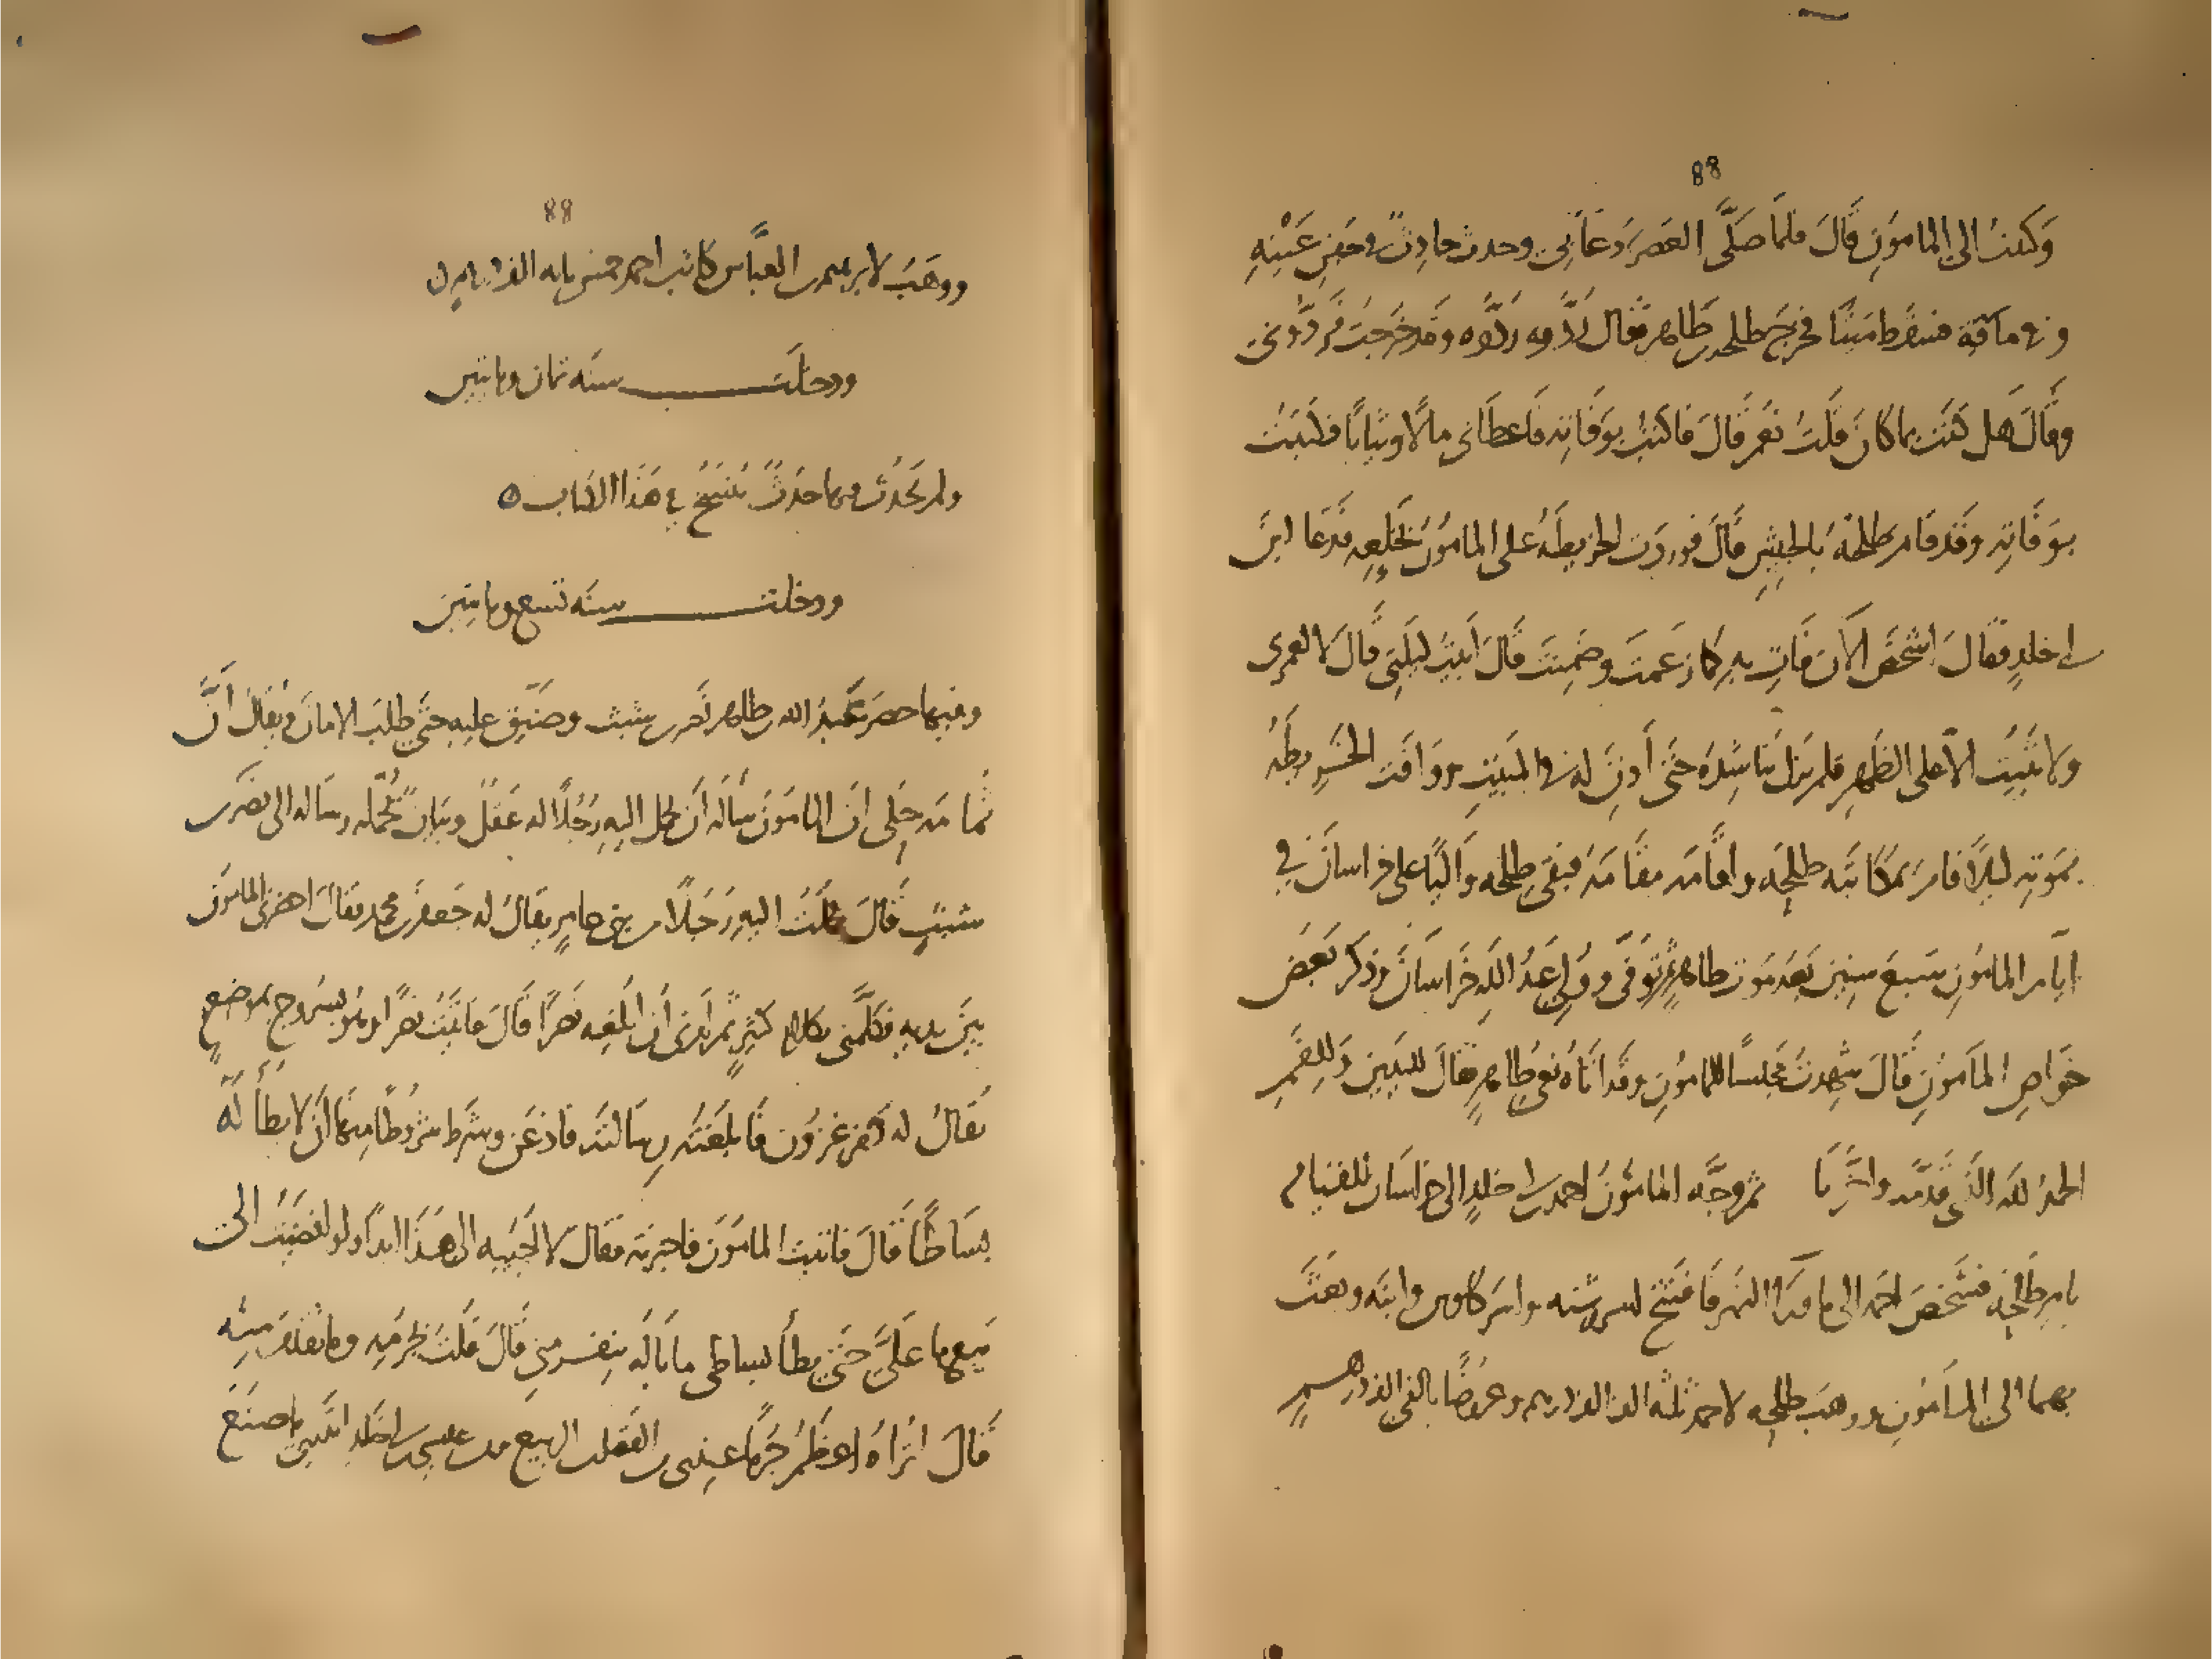 88
وَكتبتُ الى المامونِ قَالَ فلمّا صَلَّى العَصرَ دَعَانِى وحدث حادِثٌ فى جَفنِ عَيْنِهِ
وفى مآقه فسقط ميتا فخرج طلحه بن طَاهر فقال رُدُّوه رُدُّوه وقد خَرجتُ فردّونى
وقَالَ هَل كتبتَ بما كانَ قلتُ نعم قَالَ فاكتب بوَفَاتِه فاعطَانى مالًا وثيابًا فكتبتُ
بوَفَاتِه وقد قام طلحَة بالجيشِ قَالَ فوردَت الخريطَة على المامون بخَلعِه فدعَا ابنَ
ابى خلدٍ فقالَ اشخَصِ الآنَ فَاتِ بهِ كما زَعمتَ وضَمِنتَ قَالَ أبيتُ ليلَتِى قالَ لا لعمرى
ولا تَبِيتُ الّا على الظَهرِ فلم يزل يُنَاشِدُه حَتَّى أَذِنَ له فى المَبيتِ ووَافَت الخَريطَه
بمَوتِه ليلًا فامر بمكَاتَبَه طلحَه واقَامَه مقَامَه فبقى طلحه وَاليًا على خراسانَ فى
ايّام المامونِ سَبعَ سِنينَ بَعدَ مَوت طاهِرٍ ثم تُوُفّى ووُلِى عَبدُ اللهِ خُراسانَ وذكر بَعضُ
خَواصِ المامُونِ قَالَ شَهِدتُ مجلِسًا للمامُونِ وقد اتَاهُ نَعىُ طَاهِرٍ فقالَ لليَدينِ وَلِلفَمِ
الحمدُ للهِ الذّى قَدّمَه واخَّرنَا ثم وَجَّه المامُونُ احمد بن ابى خلدٍ الى خراسَان للقيام
بامرِ طَلحَه فشَخصَ احمد الى ما ورَاَ النهر فافتتح اسروشنه واسَر كاوس وابنَه وبعثَ
بهما الى المامُونِ ووهَبَ طلحَه لاحمد ثلثه الف الف درهم وعروضًا بالفى الف درهمٍ
88
ووهَبَ لابرهيم بن العبَّاس كاتب احمد خمس مايه الف درهم
ودخلَت سنَه ثمان ومايتين
ولم يَحدُث فيها حدَثٌ يُنسَخُ فى هَذَا الكتاب ه
ودخلت سنَه تسع ومايتين
وفيها حصَر عَبدُ الله بن طاهر نَصر بن شبث وضَيّق عليهِ حتَّى طلبَ الامانَ ويُقالُ أنَّ
ثمامَه حكى انّ المامونَ سأله أن يحمل اليهِ رَجُلًا له عَقلٌ وبيانٌ يُحمّله رسَاله الى نصَر بن
شبثٍ قَالَ فحملتُ اليهِ رَجُلًا من بنى عامرٍ يقالُ له جَعفر بن محمد فقالَ احضرنى المامون
بينَ يديهِ فكلَّمنى بكلامٍ كثيرٍ ثم امرنى ان ابلغه نَصرًا قَالَ فاتَيتُ نصرًا وهو بسَروج بموضعٍ
يُقالُ له كفر عزون فابلغتُه رسَالتَه فاذعَن وشَرط شرُوطًا منها أن لا يطأَ لَه
بسَاطًا قَالَ فاتيتُ المامُونَ فاخبرته فقالَ لا اجيبه الى هَذَا ابدًا ولو افضَيتُ الى
بَيع ما عَلَىَّ حتَّى يطأَ بساطى ما بَالُه ينفر منّى قَالَ قلتُ لجُرمِه وما تقدَّمَ منهُ
قَالَ اتُراهُ اعظَمَ جُرمًا عندى من الفَضل بن الربيع ومن عيسى بن ابى خلدٍ اتَدرى ما صنَعَ